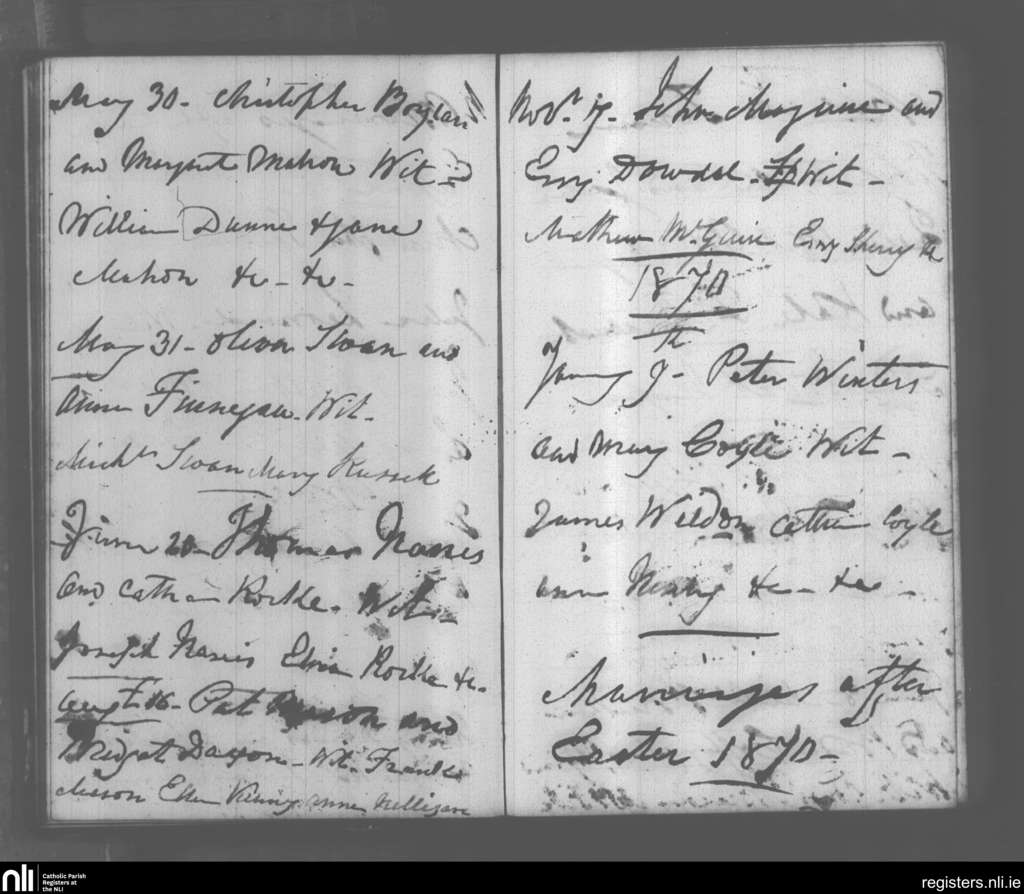 May 30 - Christopher Boylan
and Margret Mahon Wit -
William Dunne & Jane
Mahon &c - &c -
May 31 - Oliver Sloan and
Anne Finnegan - Wit -
Mich^l Sloan Mary Kusick
June 20 - Thomas
and Cathn Rorke - Wit -
Joseph Rorke &c -
Augt 16 - Pat and
Bridget - Wit - Francis
Meeson Ellen Anne Milligan
Nov^r 17 - John Maguire and
Essy Dowdal - Wit -
Mathew McGuire Essy &c
1870
January 7th - Peter Winters
and Mary Coyle Wit -
James Weldon Cathn Coyle
Anne &c - &c -
Marriages after
Easter 1870 -
nli
Catholic Parish
Registers at
the NLI
registers.nli.ie